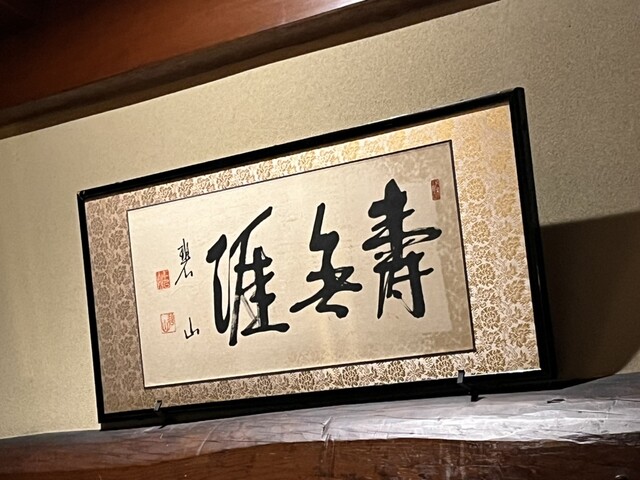 壽無涯
碧山